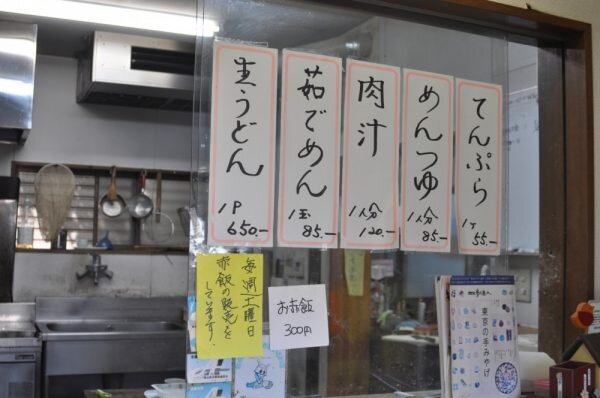 生うどん
1P
650.-
茹でめん
1玉
85.-
肉汁
1人分
120.-
めんつゆ
1人分
85.-
てんぷら
1ケ
55.-
毎週土曜日
赤飯の販売を
しています。
お赤飯
300円
東京の手みやげ